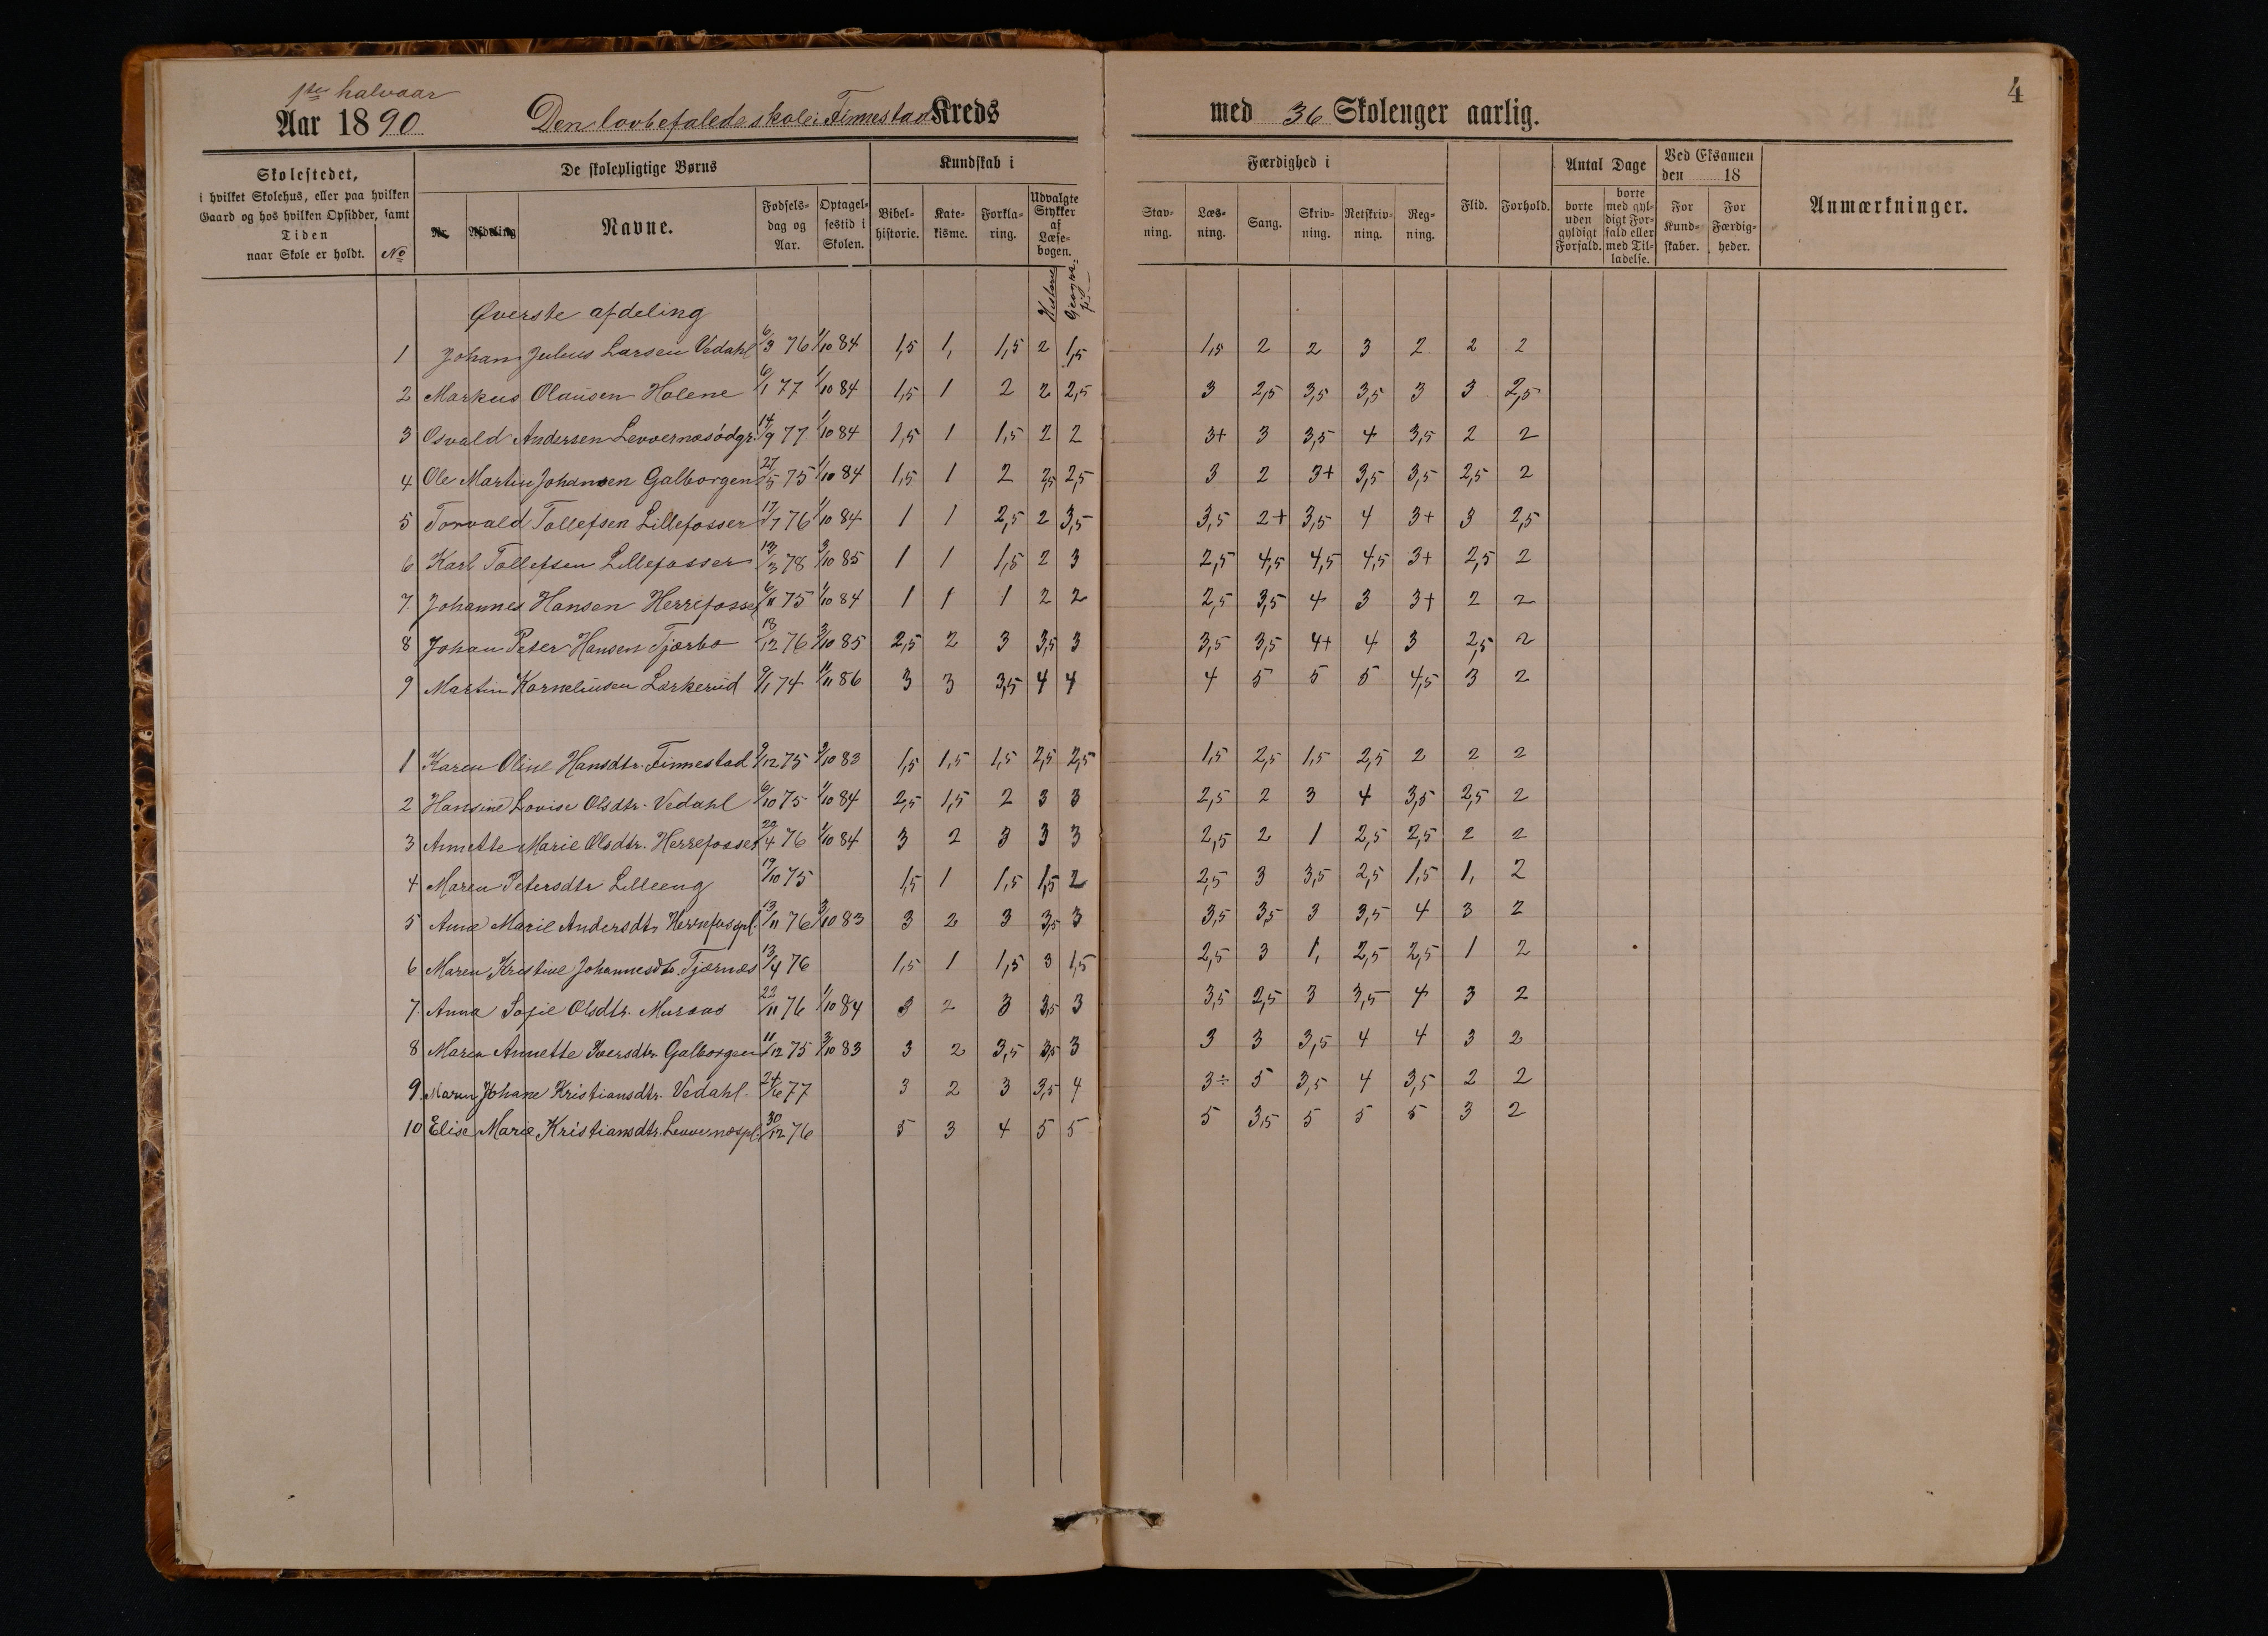 1ste halvaar
Aar 1890 Den lovbefalede skole i Finnestad Kreds med 36 Skolenger aarlig. 4
Skolestedet, i hvilket Skolehus, eller paa hvilken Gaard og hos hvilken Opsidder, samt Tiden naar Skole er holdt. No
De skolepligtige Børns
Nr. Afdeling Navne. Fødsels-dag og Aar. Optagel-sestid i Skolen.
Kundskab i
Bibel-historie. Kate-kisme. Forkla-ring. Udvalgte Stykker af Læse-bogen. Historie
Færdighed i
Stav-ning. Læs-ning. Sang. Skriv-ning. Retskriv-ning. Reg-ning. Flid. Forhold.
Antal Dage
borte uden gyldigt Forfald. borte med gyl-digt For-fald eller med Til-ladelse.
Ved Eksamen den 18
For Kund-skaber. For Færdig-heder.
Anmærkninger.
Øverste afdeling
1 Johan Julius Larsen Vedahl 6/3 76 1/10 84 1,5 1, 1,5 2 1,5 1,5 2 2 3 2 2 2
2 Markus Olausen Holene 6/1 77 1/10 84 1,5 1 2 2 2,5 3 2,5 3,5 3,5 3 3 2,5
3 Osvald Andersen Levernæsødgr. 14/9 77 1/10 84 1,5 1 1,5 2 2 3+ 3 3,5 4 3,5 2 2
4 Ole Martin Johansen Galborgen 27/5 75 1/10 84 1,5 1 2 2,5 2,5 3 2 3+ 3,5 3,5 2,5 2
5 Torvald Tollefsen Lillefosser 17/7 76 1/10 84 1 1 2,5 2 3,5 3,5 2+ 3,5 4 3+ 3 2,5
6 Karl Tollefsen Lillefosser 13/3 78 3/10 85 1 1 1,5 2 3 2,5 4,5 4,5 4,5 3+ 2,5 2
7. Johannes Hansen Herrefosser 6/11 75 1/10 84 1 1 1 2 2 2,5 3,5 4 3 3+ 2 2
8 Johan Peter Hansen Tjærbo 18/12 76 3/10 85 2,5 2 3 3,5 3 3,5 3,5 4+ 4 3 2,5 2
9 Martin Korneliusen Lærkerud 9/1 74 1/11 86 3 3 3,5 4 4 4 5 5 5 4,5 3 2
1 Karen Oline Hansdtr. Finnestad 9/12 75 3/10 83 1,5 1,5 1,5 2,5 2,5 1,5 2,5 1,5 2,5 2 2 2
2 Hansine Lovise Olsdtr. Vedahl 6/10 75 1/10 84 2,5 1,5 2 3 3 2,5 2 3 4 3,5 2,5 2
3 Annette Marie Olsdtr. Herrefosser 22/4 76 1/10 84 3 2 3 3 3 2,5 2 1 2,5 2,5 2 2
4 Maren Petersdtr Lilleeng 19/10 75 1,5 1 1,5 1,5 2 2,5 3 3,5 2,5 1,5 1, 2
5 Anne Marie Andersdtr Herrefospl. 13/11 76 3/10 83 3 2 3 3,5 3 3,5 3,5 3 3,5 4 3 2
6 Maren Kristine Johannesdtr. Tjærnæs 13/4 76 1,5 1 1,5 3 1,5 2,5 3 1, 2,5 2,5 1 2
7. Anna Sofie Olsdtr. 22/11 76 1/10 84 3 2 3 3,5 3 3,5 2,5 3 3,5 4 3 2
8 Maren Annette Iversdtr. Galborgen 11/12 75 3/10 83 3 2 3,5 3,5 3 3 3 3,5 4 4 3 2
9. Maren Johane Kristiansdtr. Vedahl. 24/6 77 3 2 3 3,5 4 3÷ 5 3,5 4 3,5 2 2
10 Elise Marie Kristiansdtr. Levernæspl. 30/12 76 5 3 4 5 5 5 3,5 5 5 5 3 2